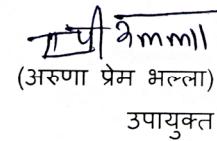 (अरुणा प्रेम भल्ला)
उपायुक्त